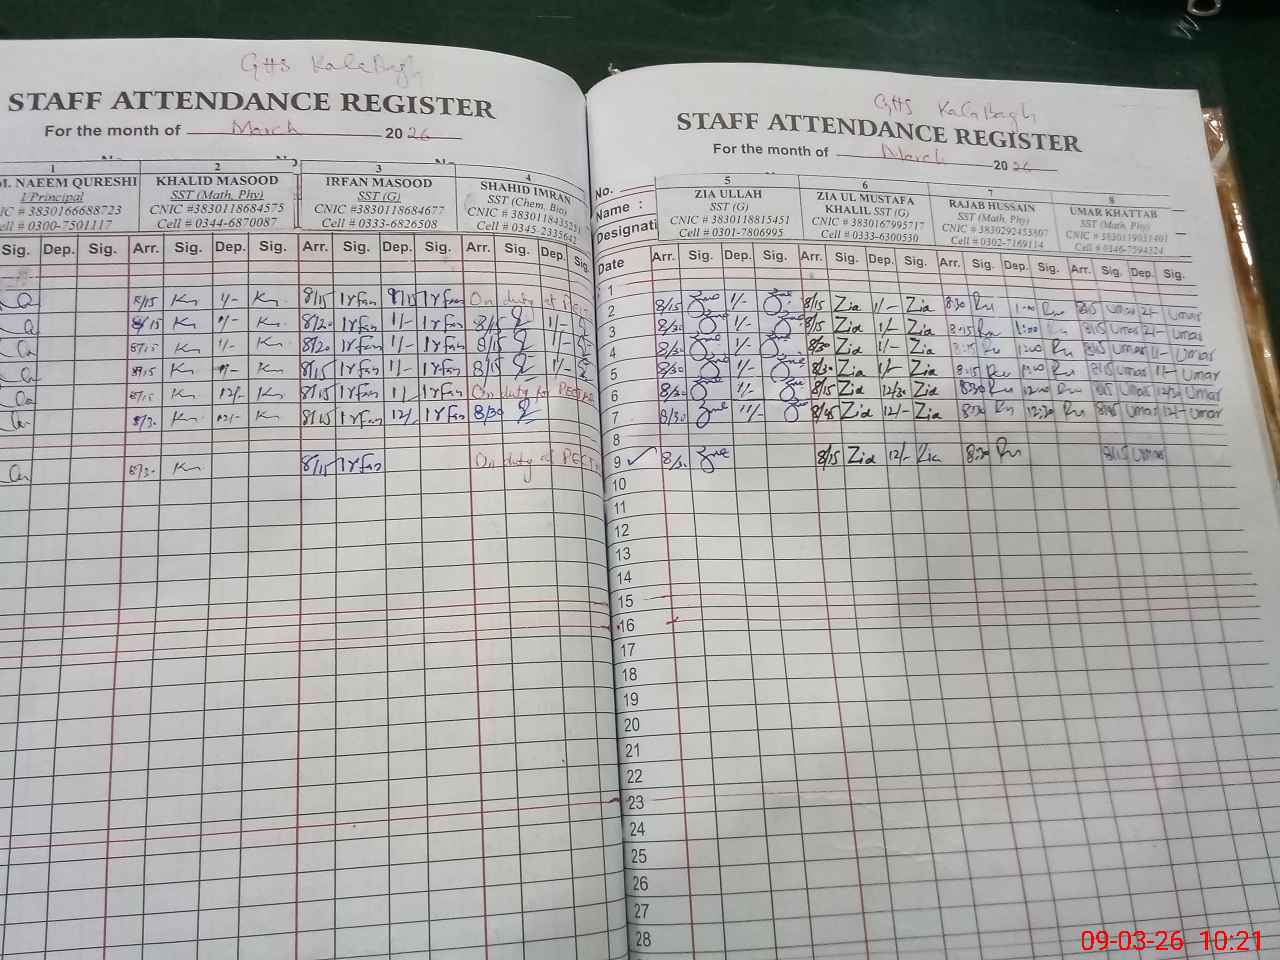 GHS KalaBagh
STAFF ATTENDANCE REGISTER
For the month of March 2026
1 2 3 4
M. NAEEM QURESHI KHALID MASOOD IRFAN MASOOD SHAHID IMRAN
I/Principal SST (Math, Phy) SST (G) SST (Chem, Bio)
CNIC # 3830166688723 CNIC # 3830118684575 CNIC #3830118684677 CNIC # 3830118435251
Cell # 0300-7501117 Cell # 0344-6870087 Cell # 0333-6826508 Cell # 0345 2335642
Sig. Dep. Sig. Arr. Sig. Dep. Sig. Arr. Sig. Dep. Sig. Arr. Sig. Dep. Sig.
8/15 Km 1/- Km 8/15 Irfan 1/- Irfan On duty at
8/15 Km 1/- Km 8/20 Irfan 1/- Irfan 8/15 1/-
8/15 Km 1/- Km 8/20 Irfan 1/- Irfan 8/15 1/-
8/15 Km 1/- Km 8/15 Irfan 1/- Irfan 8/15 1/-
8/15 Km 12/- Km 8/15 Irfan 1/- Irfan On duty for
8/30 Km 12/- Km 8/15 Irfan 12/- Irfan 8/30
8/30 Km 8/15 Irfan On duty at
GHS KalaBagh
STAFF ATTENDANCE REGISTER
For the month of March 2026
No. 5 6 7 8
Name : ZIA ULLAH ZIA UL MUSTAFA KHALIL SST (G) RAJAB HUSSAIN UMAR KHATTAB
Designati SST (G) SST (Math, Phy) SST (Math, Phy)
CNIC # 3830118815451 CNIC # 3830167995717 CNIC # 3830292453807 CNIC # 3830119031401
Cell # 0301-7806995 Cell # 0333-6300530 Cell # 0302-7169114 Cell # 0346-7594324
Date Arr. Sig. Dep. Sig. Arr. Sig. Dep. Sig. Arr. Sig. Dep. Sig. Arr. Sig. Dep. Sig.
1
2 8/15 Zia 1/- Zia 8/15 Zia 1/- Zia 8:30 Ru 1:00 Ru 8/15 Umar 2/- Umar
3 8/20 1/- 8/15 Zia 1/- Zia 8:15 Ru 1:00 Ru 8/15 Umar 2/- Umar
4 8/30 1/- 8/30 Zia 1/- Zia 8:15 Ru 1200 Ru 8/15 Umar 1/- Umar
5 8/20 1/- 8/30 Zia 1/- Zia 8:15 Ru 1200 Ru 8/15 Umar 1/- Umar
6 8/20 1/- 8/15 Zia 12/30 Zia 8:30 Ru 12:00 Ru 8/15 Umar 12/30 Umar
7 8/30 11/- 8/45 Zia 12/- Zia 8:30 Ru 12:30 Ru 8/45 Umar 12/- Umar
8
9 ✓ 8/30 8/15 Zia 12/- Zia 8:30 Ru 8/15 Umar
10
11
12
13
14
15
16
17
18
19
20
21
22
23
24
25
26
27
28
09-03-26 10:21